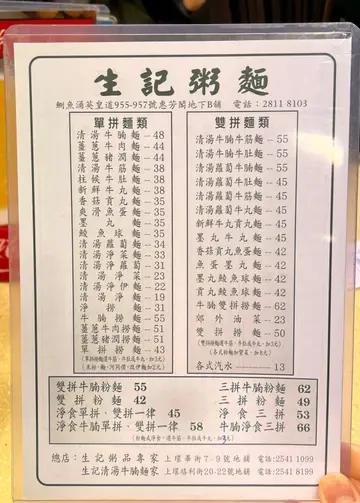 生記粥麵
鰂魚涌英皇道955-957號惠芳閣地下B舖 電話：2811 8103
單拼麵類
清湯牛腩麵 — 48
薑蔥牛肉麵 — 44
薑蔥豬潤麵 — 44
清湯牛筋麵 — 38
柱候牛肚麵 — 38
新鮮牛丸麵 — 38
香菇貢丸麵 — 35
爽滑魚蛋麵 — 35
墨丸麵 — 35
鯪魚球麵 — 35
清湯蘿蔔麵 — 34
清湯淨菜麵 — 33
清湯淨蘿蔔 — 31
清湯淨菜 — 23
清湯淨伊麵 — 22
清湯淨麵 — 19
淨撈麵 — 31
牛腩撈麵 — 55
薑蔥牛肉撈麵 — 51
薑蔥豬潤撈麵 — 51
單拼撈麵 — 43
雙拼麵類
清湯牛腩牛筋麵 — 55
清湯牛腩牛肚麵 — 55
清湯蘿蔔牛腩麵 — 55
清湯蘿蔔牛筋麵 — 45
清湯蘿蔔牛肚麵 — 45
清湯蘿蔔牛丸麵 — 45
新鮮牛丸貢丸麵 — 45
墨丸牛丸麵 — 45
香菇貢丸魚蛋麵 — 42
魚蛋墨丸麵 — 42
墨丸鯪魚球麵 — 42
貢丸鯪魚球麵 — 42
牛腩雙拼撈麵 — 62
郊外油菜 — 23
雙拼撈麵 — 50
各式汽水 — 13
雙拼牛腩粉麵 55
雙拼粉麵 42
淨食單拼、雙拼一律 45
淨食牛腩單拼、雙拼一律 58
三拼牛腩粉麵 62
三拼粉麵 49
淨食三拼 53
牛腩淨食三拼 66
總店：生記粥品專家 上環畢街7-9號地舖 電話：2541 1099
生記清湯牛腩麵家 上環禧利街20-22號地舖 電話：2541 8199